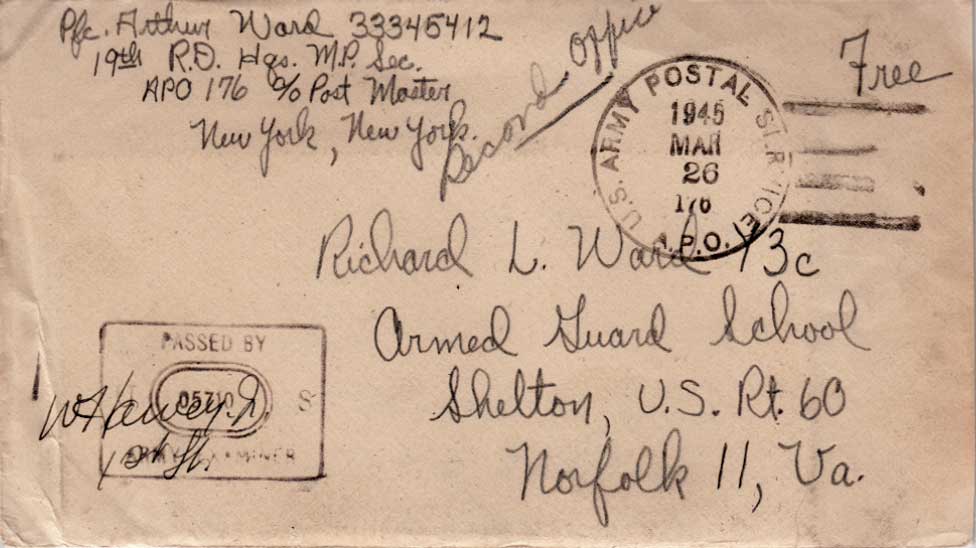 Pfc. Arthur Ward 33345412
19th R.D. Hqs. M.P. Sec.
APO 176 c/o Post Master
New York, New York.
Second Office
Free
U.S. ARMY POSTAL SERVICE
1945
MAR
26
176
A.P.O.
Richard L. Ward
Armed Guard School
Shelton, U.S. Rt. 60
Norfolk 11, Va.
PASSED BY
S
ARMY EXAMINER